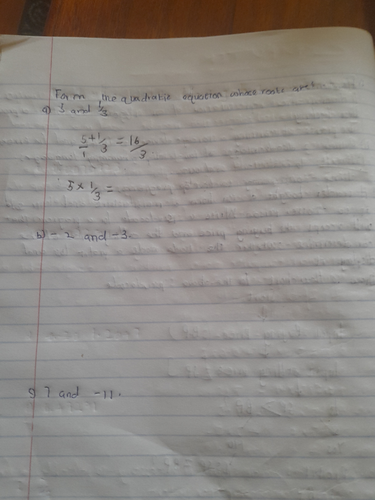 Form the quadratic equation whose roots are:
a) 5 and 1/3
5/1 + 1/3 = 16/3
5 × 1/3 =
b) - 2 and -3.
c) 7 and -11.